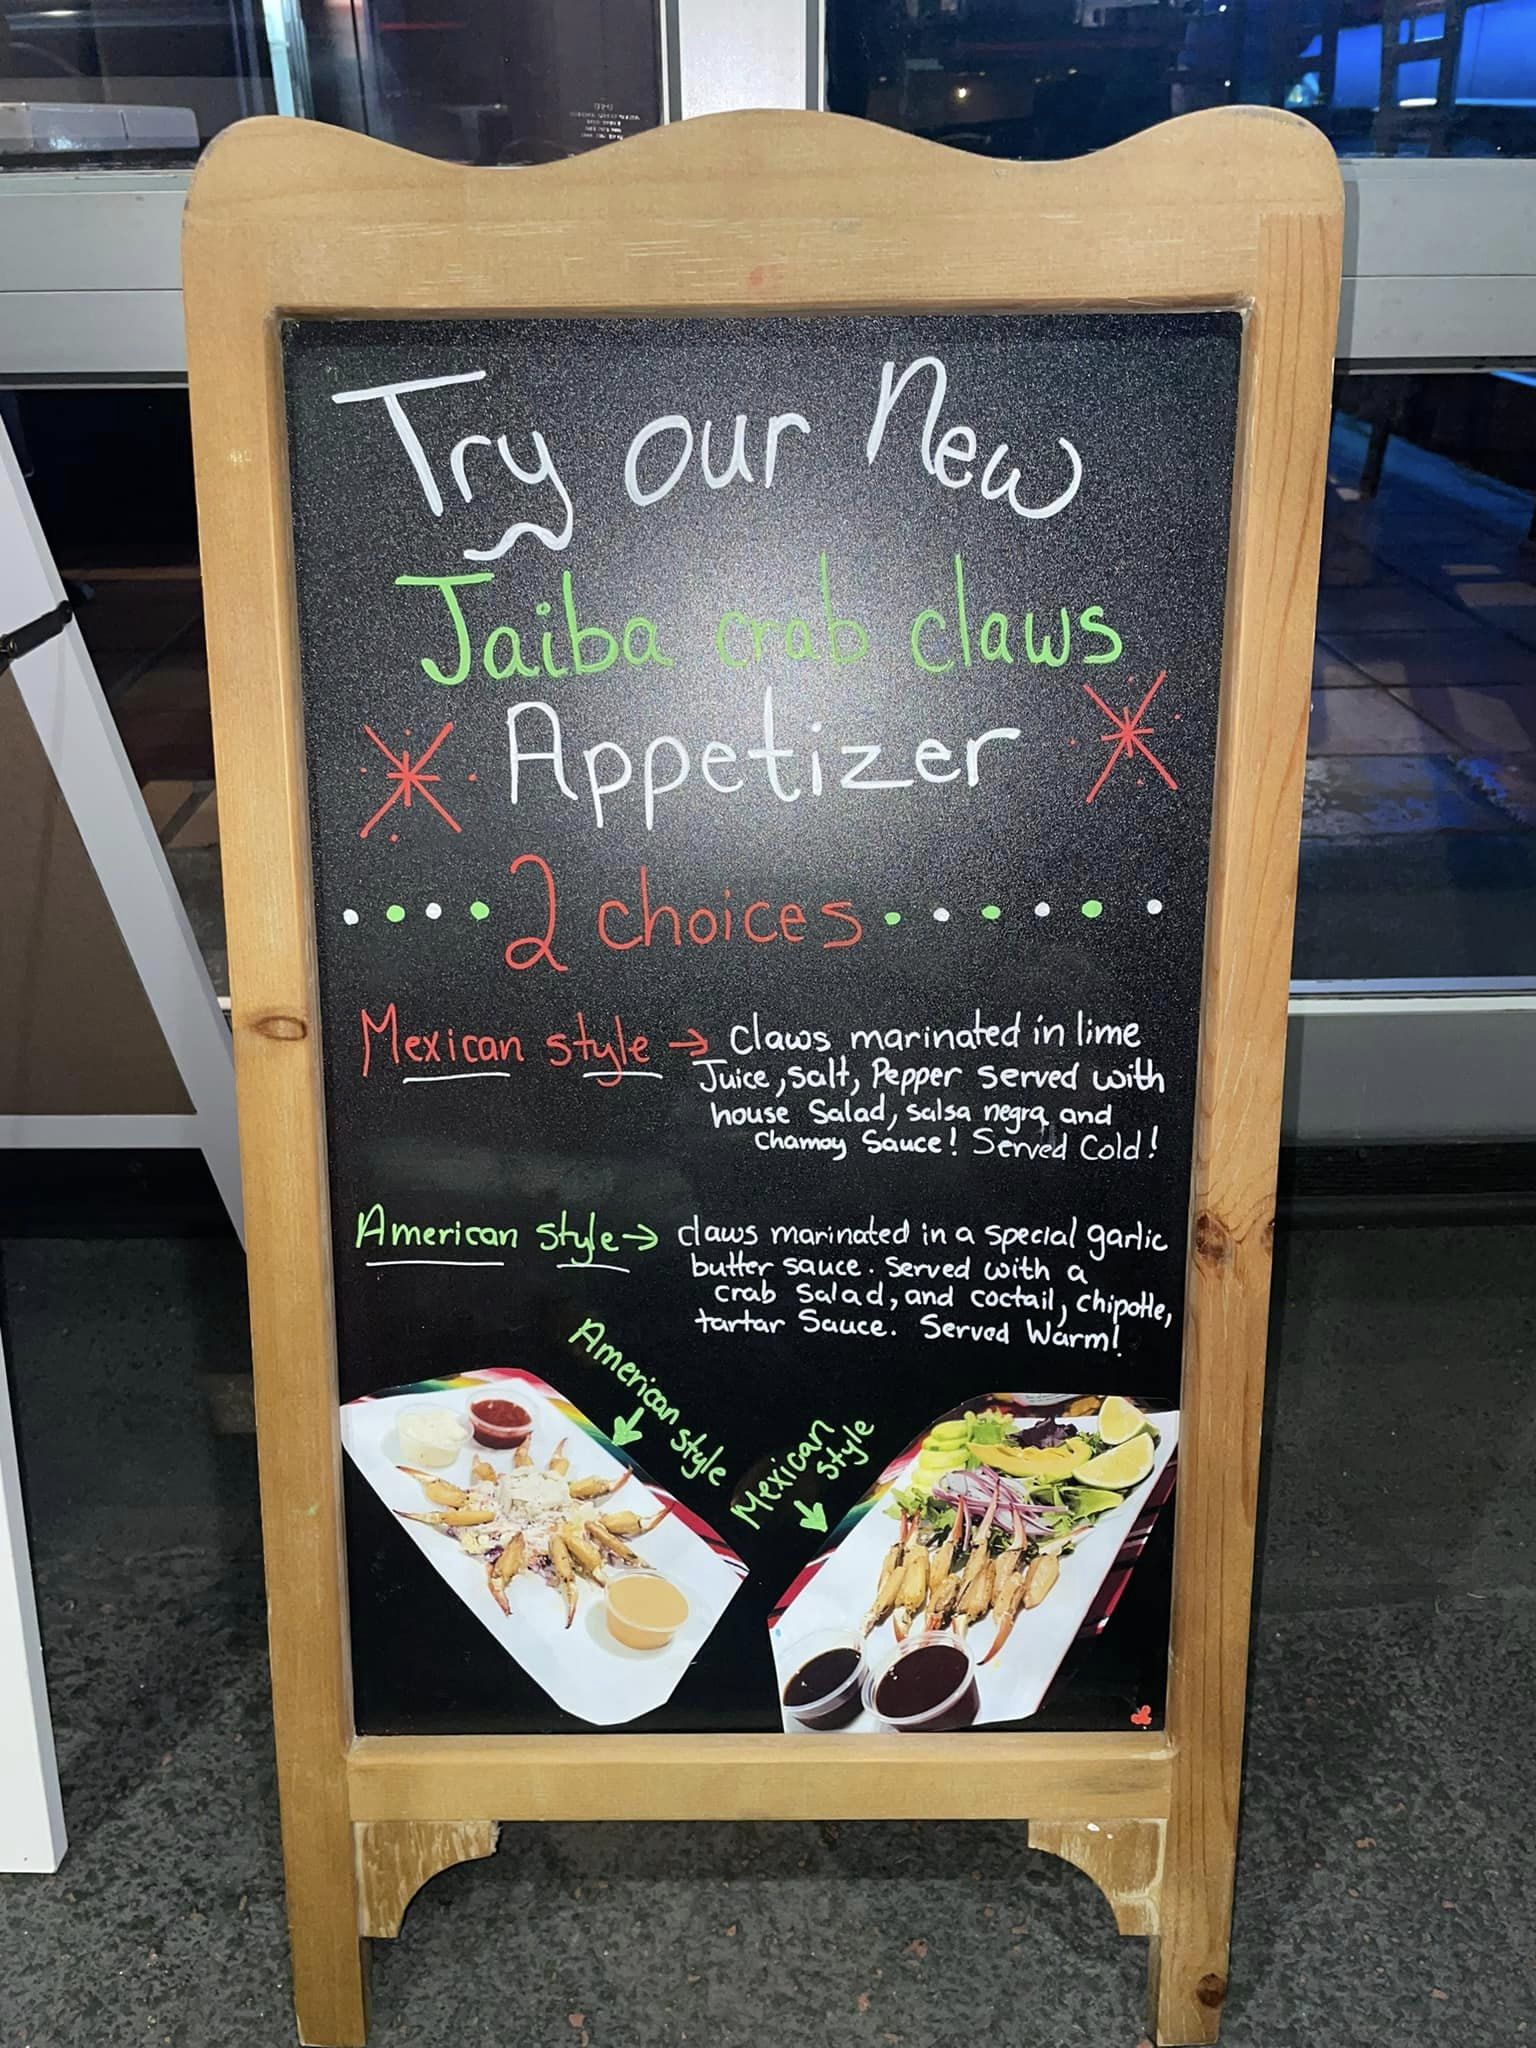 Try our New
Jaiba crab claws
Appetizer
2 choices
Mexican style → claws marinated in lime
Juice, salt, Pepper served with
house Salad, salsa negra and
Chamoy Sauce! Served Cold!
American style → claws marinated in a special garlic
butter sauce. Served with a
crab Salad, and coctail, chipotle,
tartar Sauce. Served Warm!
American style
Mexican
style